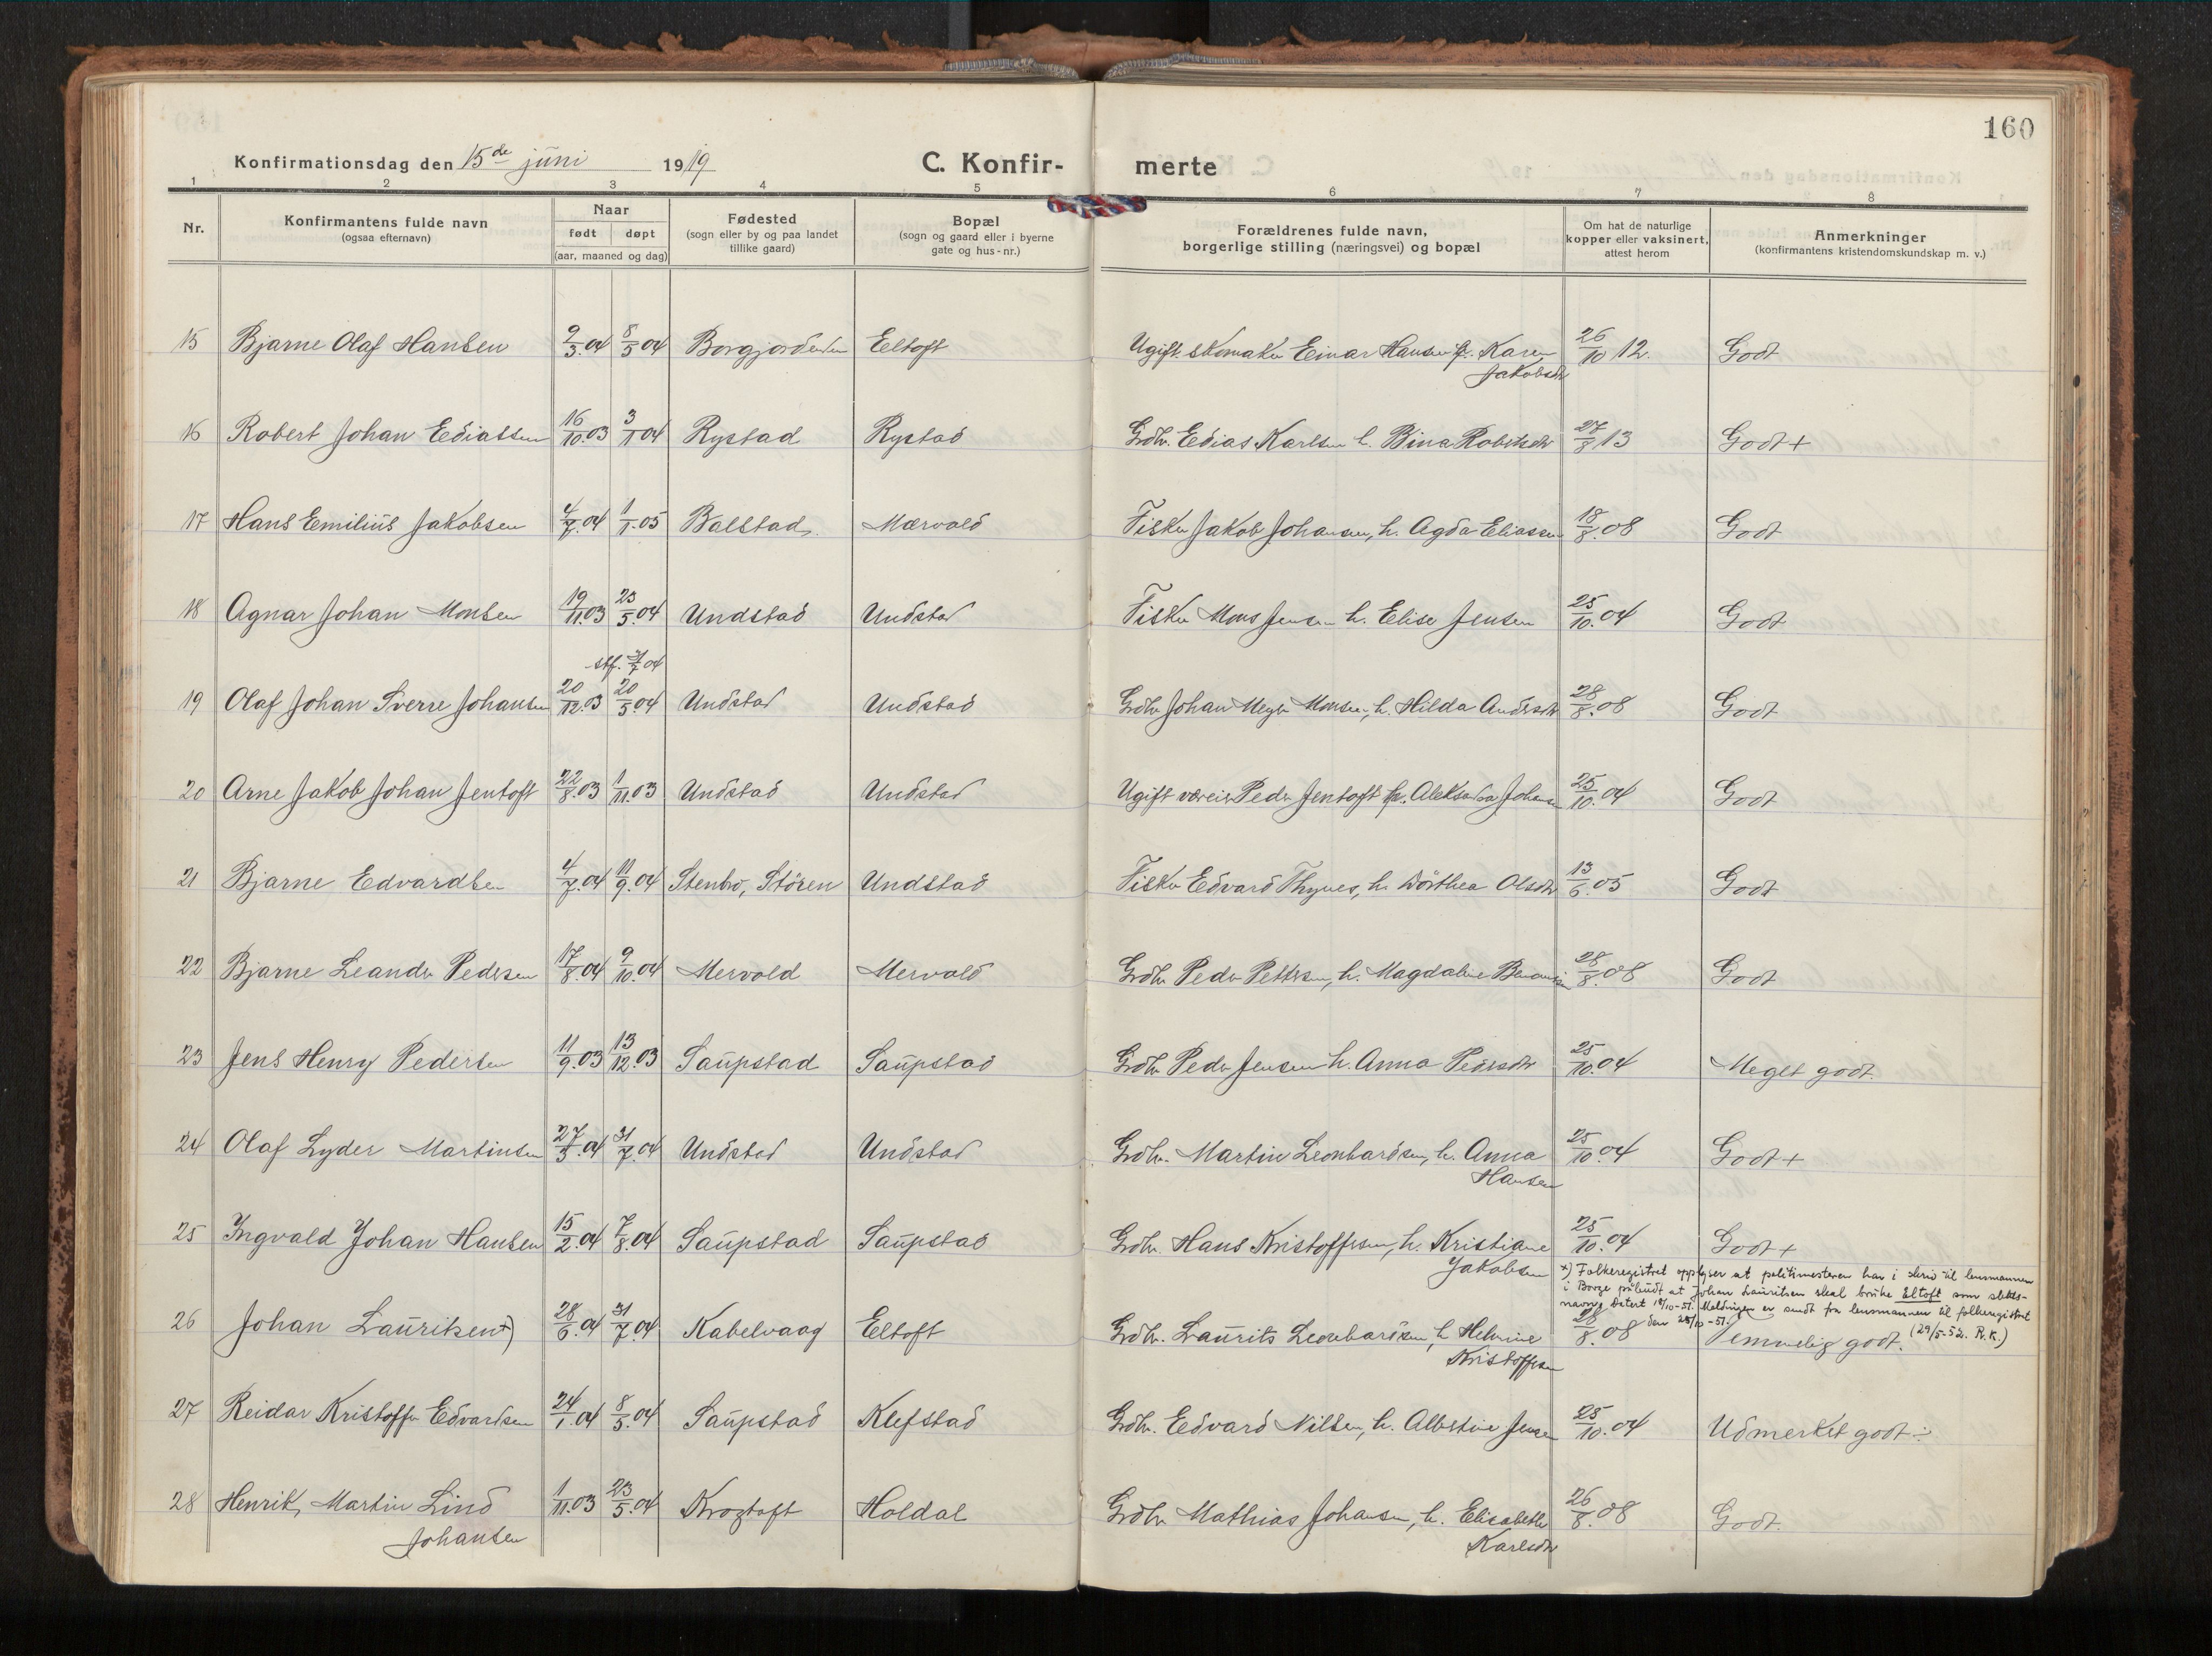 160
Konfirmationsdag den 15de juni 1919
C. Konfir- merte
1 2 3 4 5 6 7 8
Nr.
Konfirmantens fulde navn
(ogsaa efternavn)
Naar
født døpt
(aar, maaned og dag)
Fødested
(sogn eller by og paa landet
tillike gaard)
Bopæl
(sogn og gaard eller i byerne
gate og hus-nr.)
Forældrenes fulde navn,
borgerlige stilling (næringsvei) og bopæl
Om hat de naturlige
kopper eller vaksinert,
attest herom
Anmerkninger
(konfirmantens kristendomskundskap m. v.)
15 Bjarne Olaf Hansen 9/3.04 8/5 04 Eltoft Ugift skomaker Einar Hansen Karen 26/10 12. Godt
Jakobsdtr
16 Robert Johan Ediassen 16/10.03 3/1 04 Rystad Rystad Grdbr. Edias Karlsen h. Bina Robertsdtr 27/8 13 Godt +
17 Hans Emilius Jakobsen 4/7.04 1/1.05 Balstad. Mærvold Fisker Jakob Johansen, h. Agda Eliassen 18/8.08 Godt
18 Agnar Johan Monsen 19/11.03 23/5.04 Undstad Undstad Fisker Mons Jensen h. Elise Jensen 25/10.04 Godt
stf. 31/7 04
19 Olaf Johan Sverre Johansen 20/12.03 20/5.04 Undstad Undstad Grdbr Johan Meyer Monsen, h. Hilda Andersdtr 28/8.08 Godt
20 Arne Jakob Johan Jentoft 22/8.03 1/11.03 Undstad Undstad Ugift væreier Peder Jentoft Johansen 25/10.04 Godt
21 Bjarne Edvardsen 4/7.04 11/9.04 Stenbro, Støren Undstad Fisker Edvard Thynes, h. Dorthea Olsdtr 13/6.05 Godt
22 Bjarne Leander Pedersen 17/8.04 9/10.04 Mervold Mervold Grdbr Peder Pettersen, h. Magdaline 28/8.08 Godt
23 Jens Henry Pedersen 11/9.03 13/12.03 Saupstad Saupstad Grdbr Peder Jensen h. Anna Pedersdtr 25/10.04 Meget godt.
24 Olaf Lyder Martinsen 27/3.04 31/7.04 Undstad Undstad Grdbr. Martin Leonhardsen, h. Anna 25/10.04 Godt +
Hansen
25 Ingvald Johan Hansen 15/2.04 7/8.04 Saupstad Saupstad Grdbr. Hans Kristoffersen, h. Kristiane 25/10.04 Godt +
Jakobsen
x) Folkeregistret opplyser at politimesteren har i skriv til lensmannen
i Borge påbudt at Johan Lauritsen skal bruke Eltoft som slekts-
navn. Datert 18/10-51. Meldingen er sendt fra lensmannen til folkeregistret
den 25/10-51. (29/5-52. R.K.)
26 Johan Lauritsen x) 28/6.04 31/7.04 Kabelvaag Eltoft Grdbr. Laurits Leonhardsen, h. Helmine 28/8.08 Temmelig godt.
Kristoffersen
27 Reidar Kristoffer Edvardsen 24/1.04 8/5.04 Saupstad Klefstad Grdbr. Edvard Nilsen, h. Albertine Jensen 25/10.04 Udmerket godt ÷
28 Henrik Martin Lind 1/11.03 23/5.04 Krogtoft Holdal Grdbr Mathias Johansen, h. Elisabeth 26/8.08 Godt.
Johansen Karlsdtr